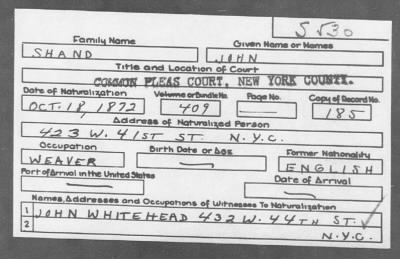 S 530
Family Name Given Name or Names
SHAND JOHN
Title and Location of Court
COMMON PLEAS COURT, NEW YORK COUNTY.
Date of Naturalization Volume or Bundle No. Page No. Copy of Record No.
OCT. 18, 1872 409 — 185
Address of Naturalized Person
423 W. 41ST ST. N.Y.C.
Occupation Birth Date or Age Former Nationality
WEAVER — ENGLISH
Port of Arrival in the United States Date of Arrival
— —
Names, Addresses and Occupations of Witnesses To Naturalization
1 JOHN WHITEHEAD 432 W. 44TH ST. ✓
2 N.Y.C.